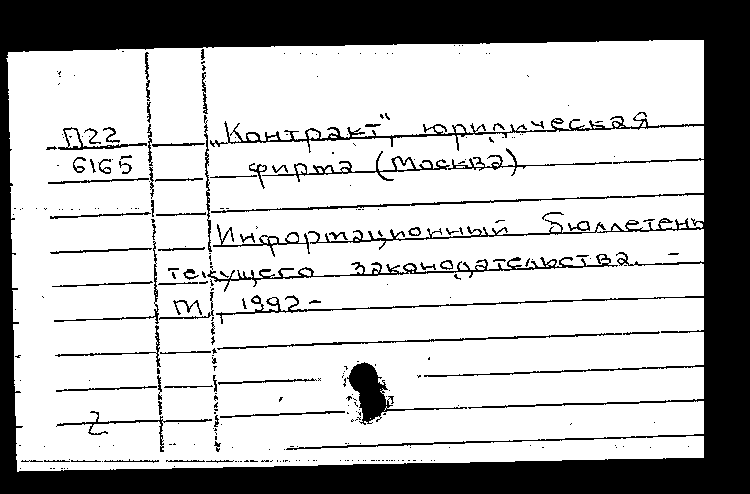 П22 „Контракт", юридическая
6165 фирма (Москва).
Информационный бюллетень
текущего законодательства. -
М., 1992-
2